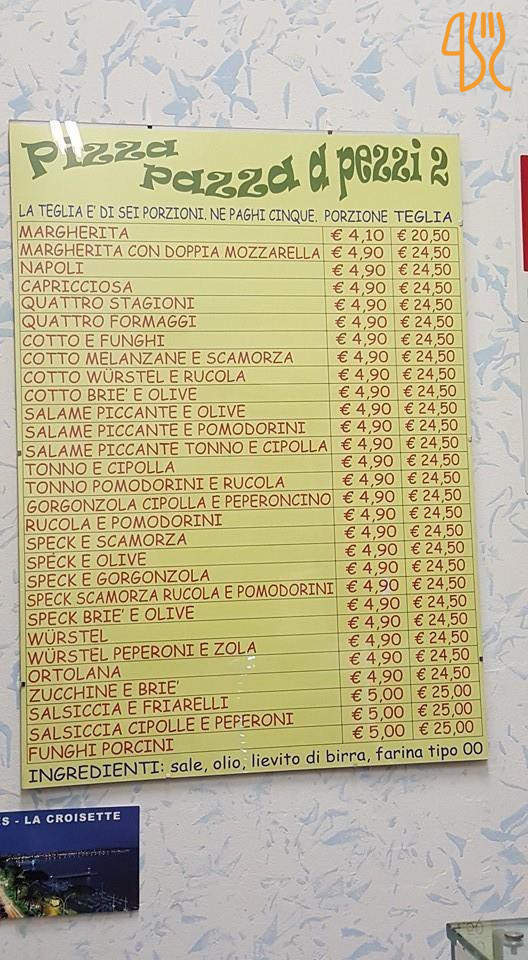 Pizza Pazza a pezzi 2
LA TEGLIA E' DI SEI PORZIONI. NE PAGHI CINQUE. PORZIONE TEGLIA
MARGHERITA € 4,10 € 20,50
MARGHERITA CON DOPPIA MOZZARELLA € 4,90 € 24,50
NAPOLI € 4,90 € 24,50
CAPRICCIOSA € 4,90 € 24,50
QUATTRO STAGIONI € 4,90 € 24,50
QUATTRO FORMAGGI € 4,90 € 24,50
COTTO E FUNGHI € 4,90 € 24,50
COTTO MELANZANE E SCAMORZA € 4,90 € 24,50
COTTO WÜRSTEL E RUCOLA € 4,90 € 24,50
COTTO BRIE' E OLIVE € 4,90 € 24,50
SALAME PICCANTE E OLIVE € 4,90 € 24,50
SALAME PICCANTE E POMODORINI € 4,90 € 24,50
SALAME PICCANTE TONNO E CIPOLLA € 4,90 € 24,50
TONNO E CIPOLLA € 4,90 € 24,50
TONNO POMODORINI E RUCOLA € 4,90 € 24,50
GORGONZOLA CIPOLLA E PEPERONCINO € 4,90 € 24,50
RUCOLA E POMODORINI € 4,90 € 24,50
SPECK E SCAMORZA € 4,90 € 24,50
SPECK E OLIVE € 4,90 € 24,50
SPECK E GORGONZOLA € 4,90 € 24,50
SPECK SCAMORZA RUCOLA E POMODORINI € 4,90 € 24,50
SPECK BRIE' E OLIVE € 4,90 € 24,50
WÜRSTEL € 4,90 € 24,50
WÜRSTEL PEPERONI E ZOLA € 4,90 € 24,50
ORTOLANA € 4,90 € 24,50
ZUCCHINE E BRIE' € 4,90 € 24,50
SALSICCIA E FRIARELLI € 5,00 € 25,00
SALSICCIA CIPOLLE E PEPERONI € 5,00 € 25,00
FUNGHI PORCINI € 5,00 € 25,00
INGREDIENTI: sale, olio, lievito di birra, farina tipo 00
ES - LA CROISETTE